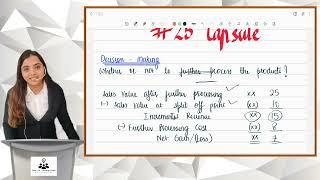 # 25 Capsule
Decision - Making
Whether or not to further process the product?
Sales Value after further processing xx 25
(-) Sales Value at Split off point (xx) 10
Incremental Revenue (xx) 15
(-) Further Processing Cost (xx) 8
Net Gain/(Loss) xx 7